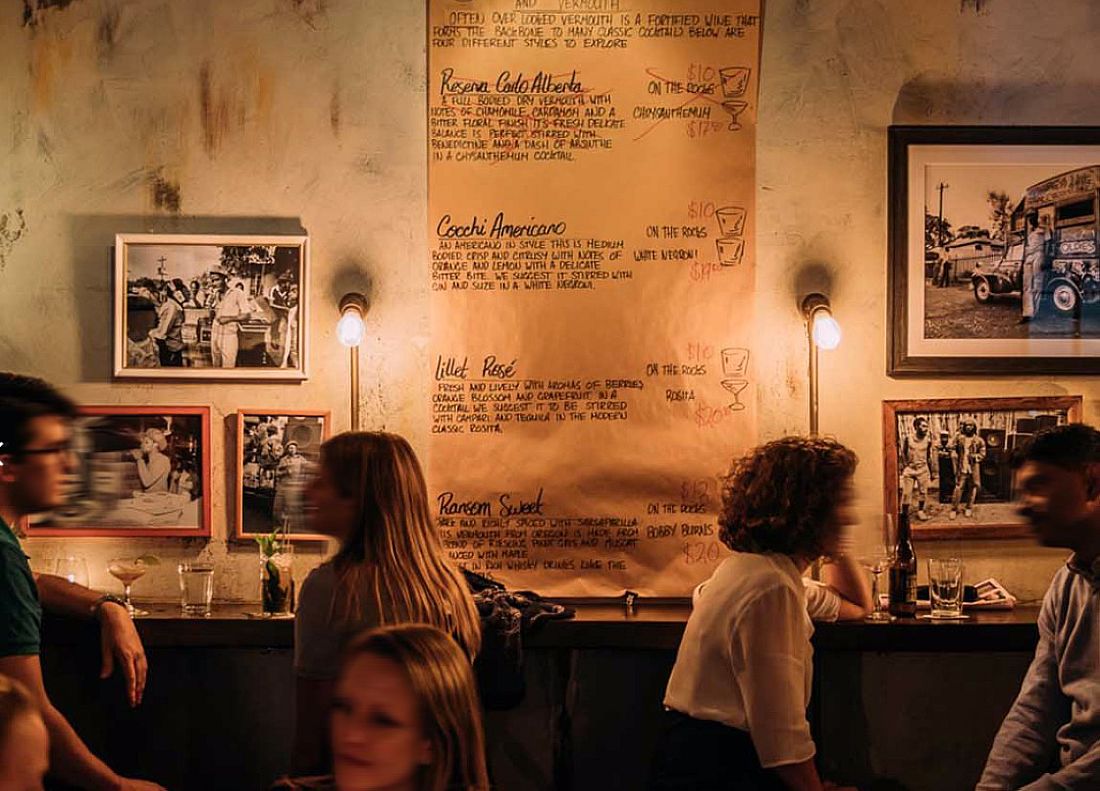 AND VERMOUTH
OFTEN OVER LOOKED VERMOUTH IS A FORTIFIED WINE THAT
FORMS THE BACKBONE TO MANY CLASSIC COCKTAILS BELOW ARE
FOUR DIFFERENT STYLES TO EXPLORE
Reserva Carlo Alberta
$10
ON THE ROCKS
A FULL BODIED DRY VERMOUTH WITH
NOTES OF CHAMOMILE, CARDAMOM AND A
BITTER FLORAL FINISH IT'S FRESH DELICATE
BALANCE IS PERFECT STIRRED WITH
BENEDICTINE AND A DASH OF ABSINTHE
IN A CHYSANTHEMUM COCKTAIL.
CHRYSANTHEMUM
Cocchi Americano
$10
ON THE ROCKS
AN AMERICANO IN STYLE THIS IS MEDIUM
BODIED CRISP AND CITRUSY WITH NOTES OF
ORANGE AND LEMON WITH A DELICATE
BITTER BITE. WE SUGGEST IT STIRRED WITH
GIN AND SUZE IN A WHITE NEGRONI.
WHITE NEGRONI
$19
Lillet Rosé
$10
ON THE ROCKS
FRESH AND LIVELY WITH AROMAS OF BERRIES,
ORANGE BLOSSOM AND GRAPEFRUIT IN A
COCKTAIL WE SUGGEST IT TO BE STIRRED
WITH CAMPARI AND TEQUILA IN THE MODERN
CLASSIC ROSITA.
ROSITA
$20
Ransom Sweet
$12
ON THE ROCKS
AND RICHLY SPICED WITH SARSAPARILLA
VERMOUTH FROM OREGON IS MADE FROM
BLEND OF RIESLING PINOT GRIS AND MUSCAT
WITH MAPLE
IN RICH WHISKY DRINKS LIKE THE
BOBBY BURNS
$20